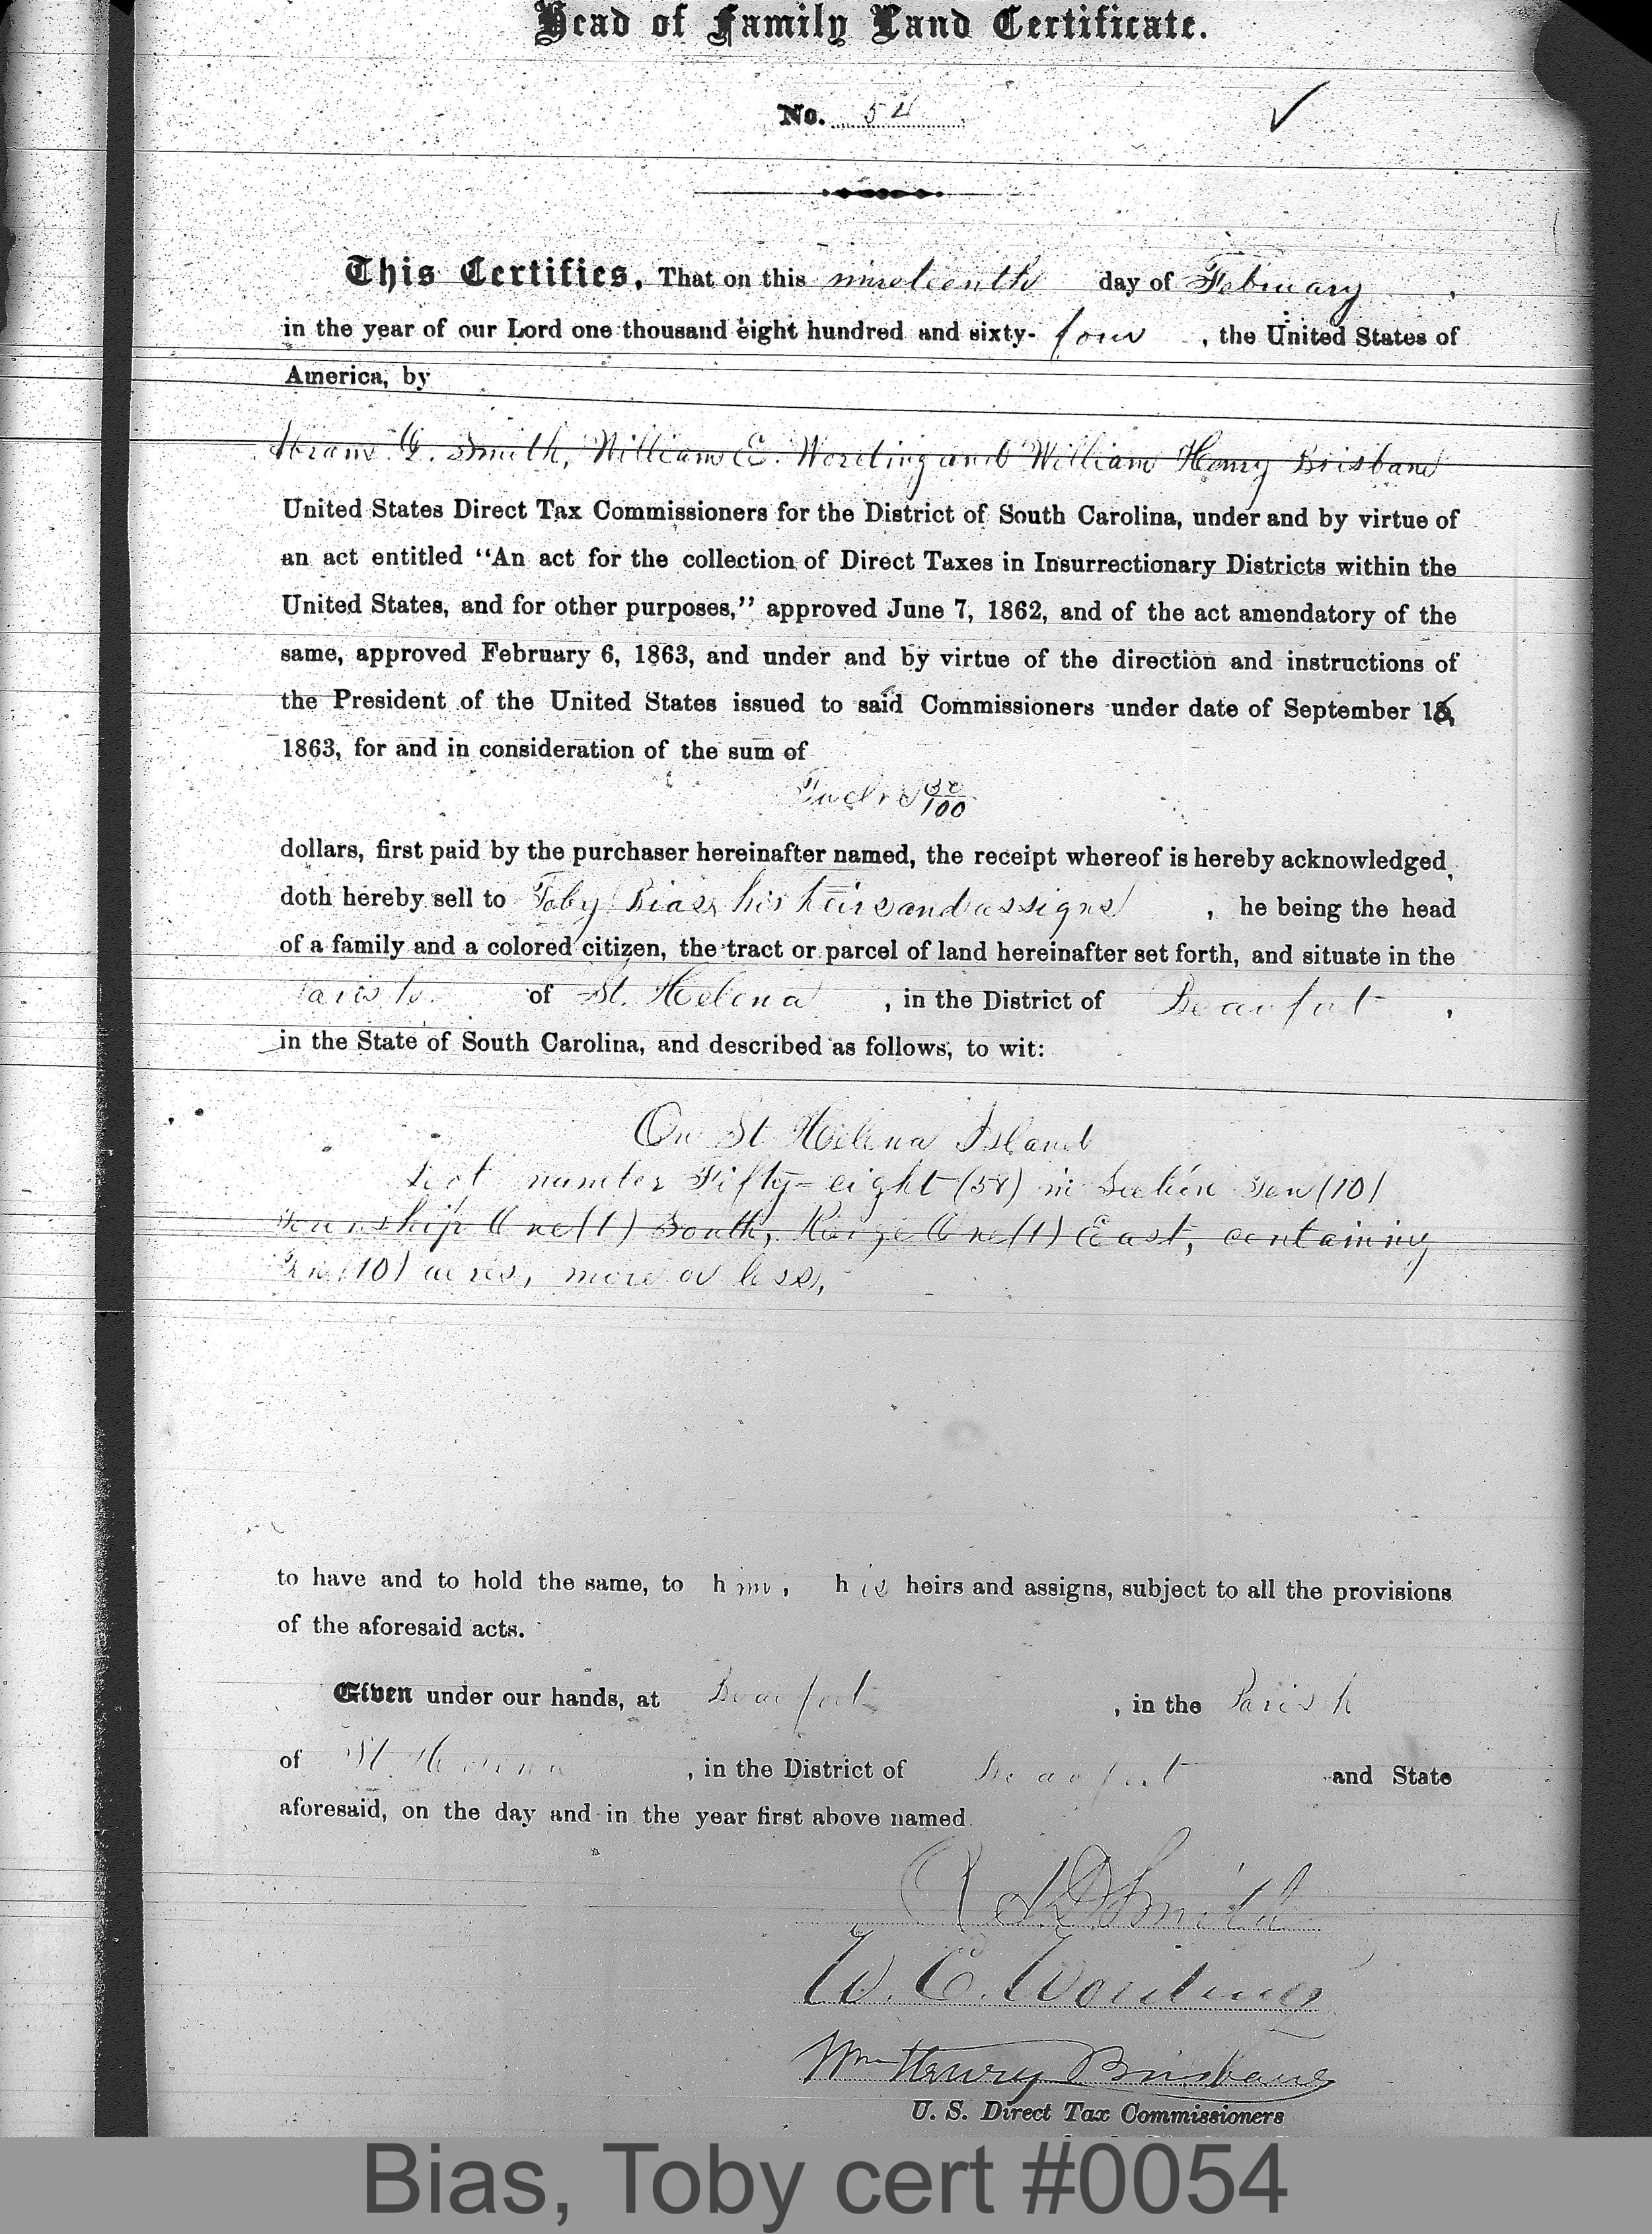 Head of Family Land Certificate.
No. 54
This Certifies, That on this nineteenth day of February,
in the year of our Lord one thousand eight hundred and sixty-four, the United States of
America, by
Smith, William E. Wording and William Henry Brisbane
United States Direct Tax Commissioners for the District of South Carolina, under and by virtue of
an act entitled “An act for the collection of Direct Taxes in Insurrectionary Districts within the
United States, and for other purposes,” approved June 7, 1862, and of the act amendatory of the
same, approved February 6, 1863, and under and by virtue of the direction and instructions of
the President of the United States issued to said Commissioners under date of September
1863, for and in consideration of the sum of
/100
dollars, first paid by the purchaser hereinafter named, the receipt whereof is hereby acknowledged,
doth hereby sell to Toby Bias, his heirs and assigns, he being the head
of a family and a colored citizen, the tract or parcel of land hereinafter set forth, and situate in the
Parish of St. Helena, in the District of Beaufort,
in the State of South Carolina, and described as follows, to wit:
On St Helena Island
Lot number Fifty-eight (58) in Section Ten (10)
Township One (1) South, Range One (1) East, containing
Ten (10) acres, more or less,
to have and to hold the same, to him, his heirs and assigns, subject to all the provisions
of the aforesaid acts.
Given under our hands, at Beaufort, in the Parish
of St. Helena, in the District of Beaufort and State
aforesaid, on the day and in the year first above named.
Smith
W. E. Wording
Wm Henry Brisbane
U. S. Direct Tax Commissioners
Bias, Toby cert #0054